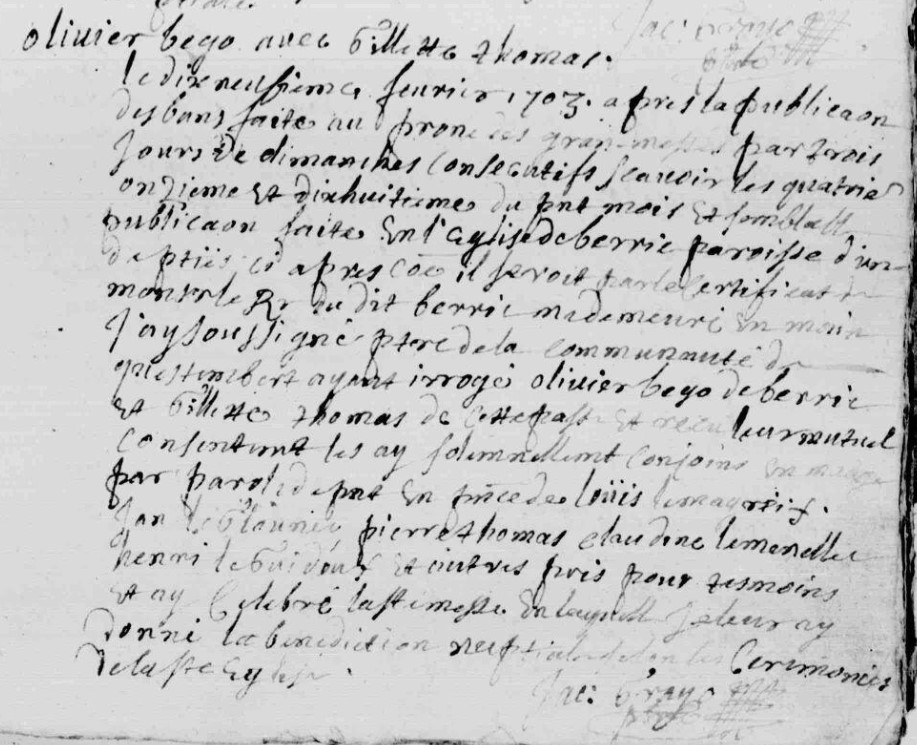 olivier bego avec Gillette thomas.
le dixneufieme feurier 1703. apres la publicaon
des bans faite au prone des grandmesses par trois
jours de dimanches consecutifs scauoir les quatrie
onzieme et dixhuitieme du pnt mois et semblabl
publicaon faite en l'eglise de berric paroisse d'un
il seroit par le certificat d
du dit berric me demeuré en main
j'ay soussigné ptre de la communauté de
questembert ayant irrogé olivier bego de berric
et Gillette thomas de cette et receu leur mutuel
consentemt les ay solemnellemt conjoins en maage
par parole de pnt en pnce de loüis
Jan pierre thomas claudine
henri le et autres pris pour tesmoins
et ay celebré la ste messe en laquell je leur ay
donné la benediction neuptiale selon les Ceremonies
de la ste eglise.
Jac: